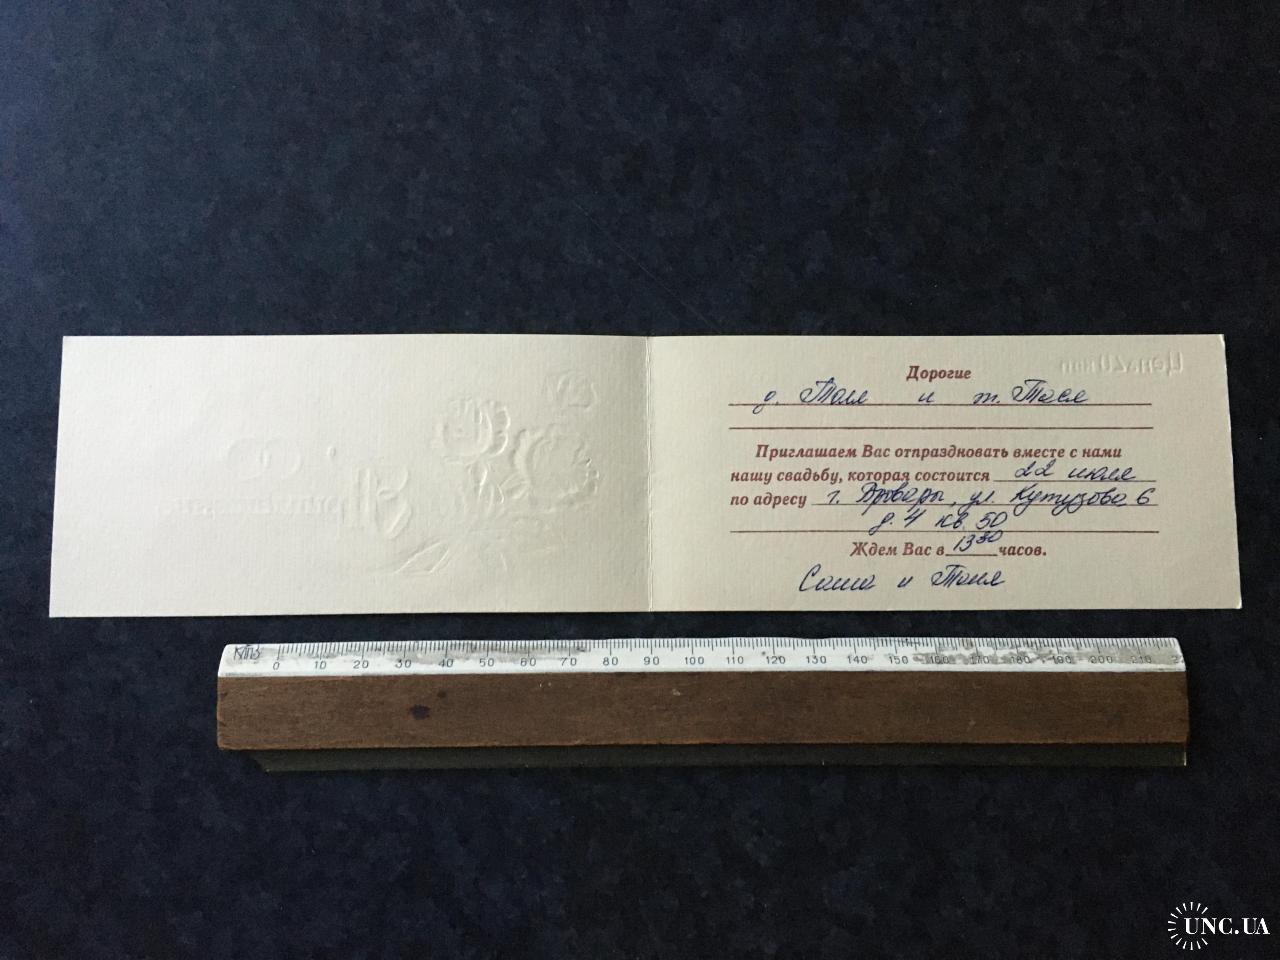 Цена 20 коп
Дорогие
д. Толя и т. Тася
Приглашаем Вас отпраздновать вместе с нами
нашу свадьбу, которая состоится 22 июля
по адресу г. Бровары, ул. Кутузова 6
д. 4 кв. 50
Ждем Вас в 13 30 часов.
Саша и Таня
Приглашение
0 10 20 30 40 50 60 70 80 90 100 110 120 130 140 150 160 170 180 190 200 210
UNC.UA